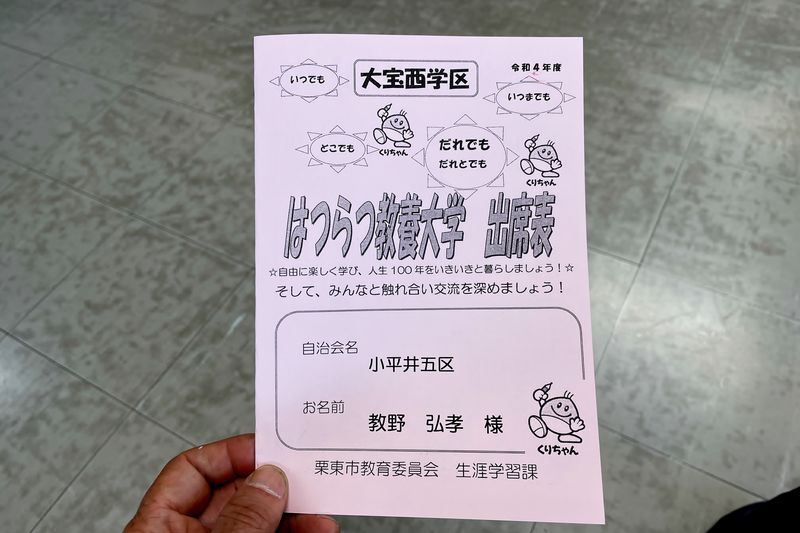 令和4年度
大宝西学区
いつでも
いつまでも
どこでも
くりちゃん
だれでも
だれとでも
くりちゃん
はつらつ教養大学 出席表
☆自由に楽しく学び、人生100年をいきいきと暮らしましょう！☆
そして、みんなと触れ合い交流を深めましょう！
自治会名
小平井五区
お名前
教野 弘孝 様
くりちゃん
栗東市教育委員会 生涯学習課